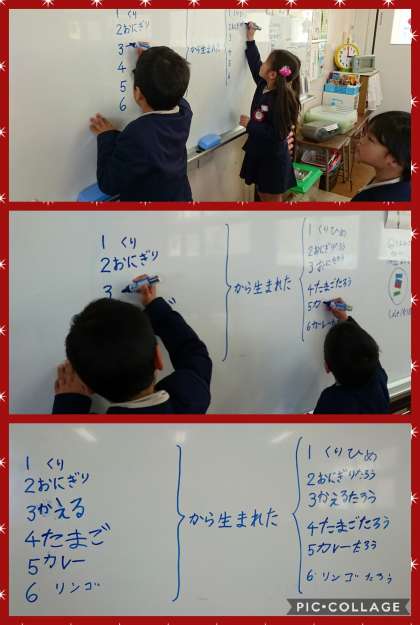 1 くり
2おにぎり
3
4
5
6
から生まれ
1 くり
2おにぎり
3
から生まれた
1 くりひめ
2おにぎりたろう
4たまごたろう
5カ
6カレー
1 くり
2おにぎり
3かえる
4たまご
5カレー
6 リンゴ
から生まれた
1 くりひめ
2おにぎりたろう
3かえるたろう
4たまごたろう
5カレーたろう
6 リンゴたろう
PIC•COLLAGE